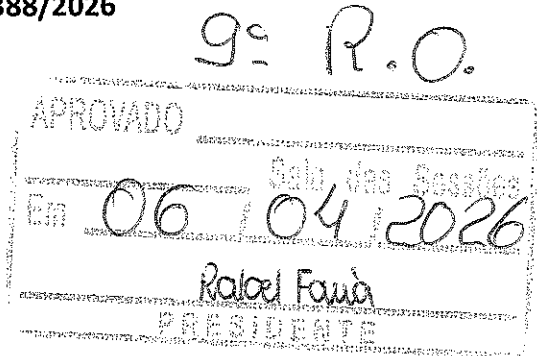 388/2026
9ª R.O.
APROVADO
Sala das Sessões
Em 06 / 04 / 2026
PRESIDENTE